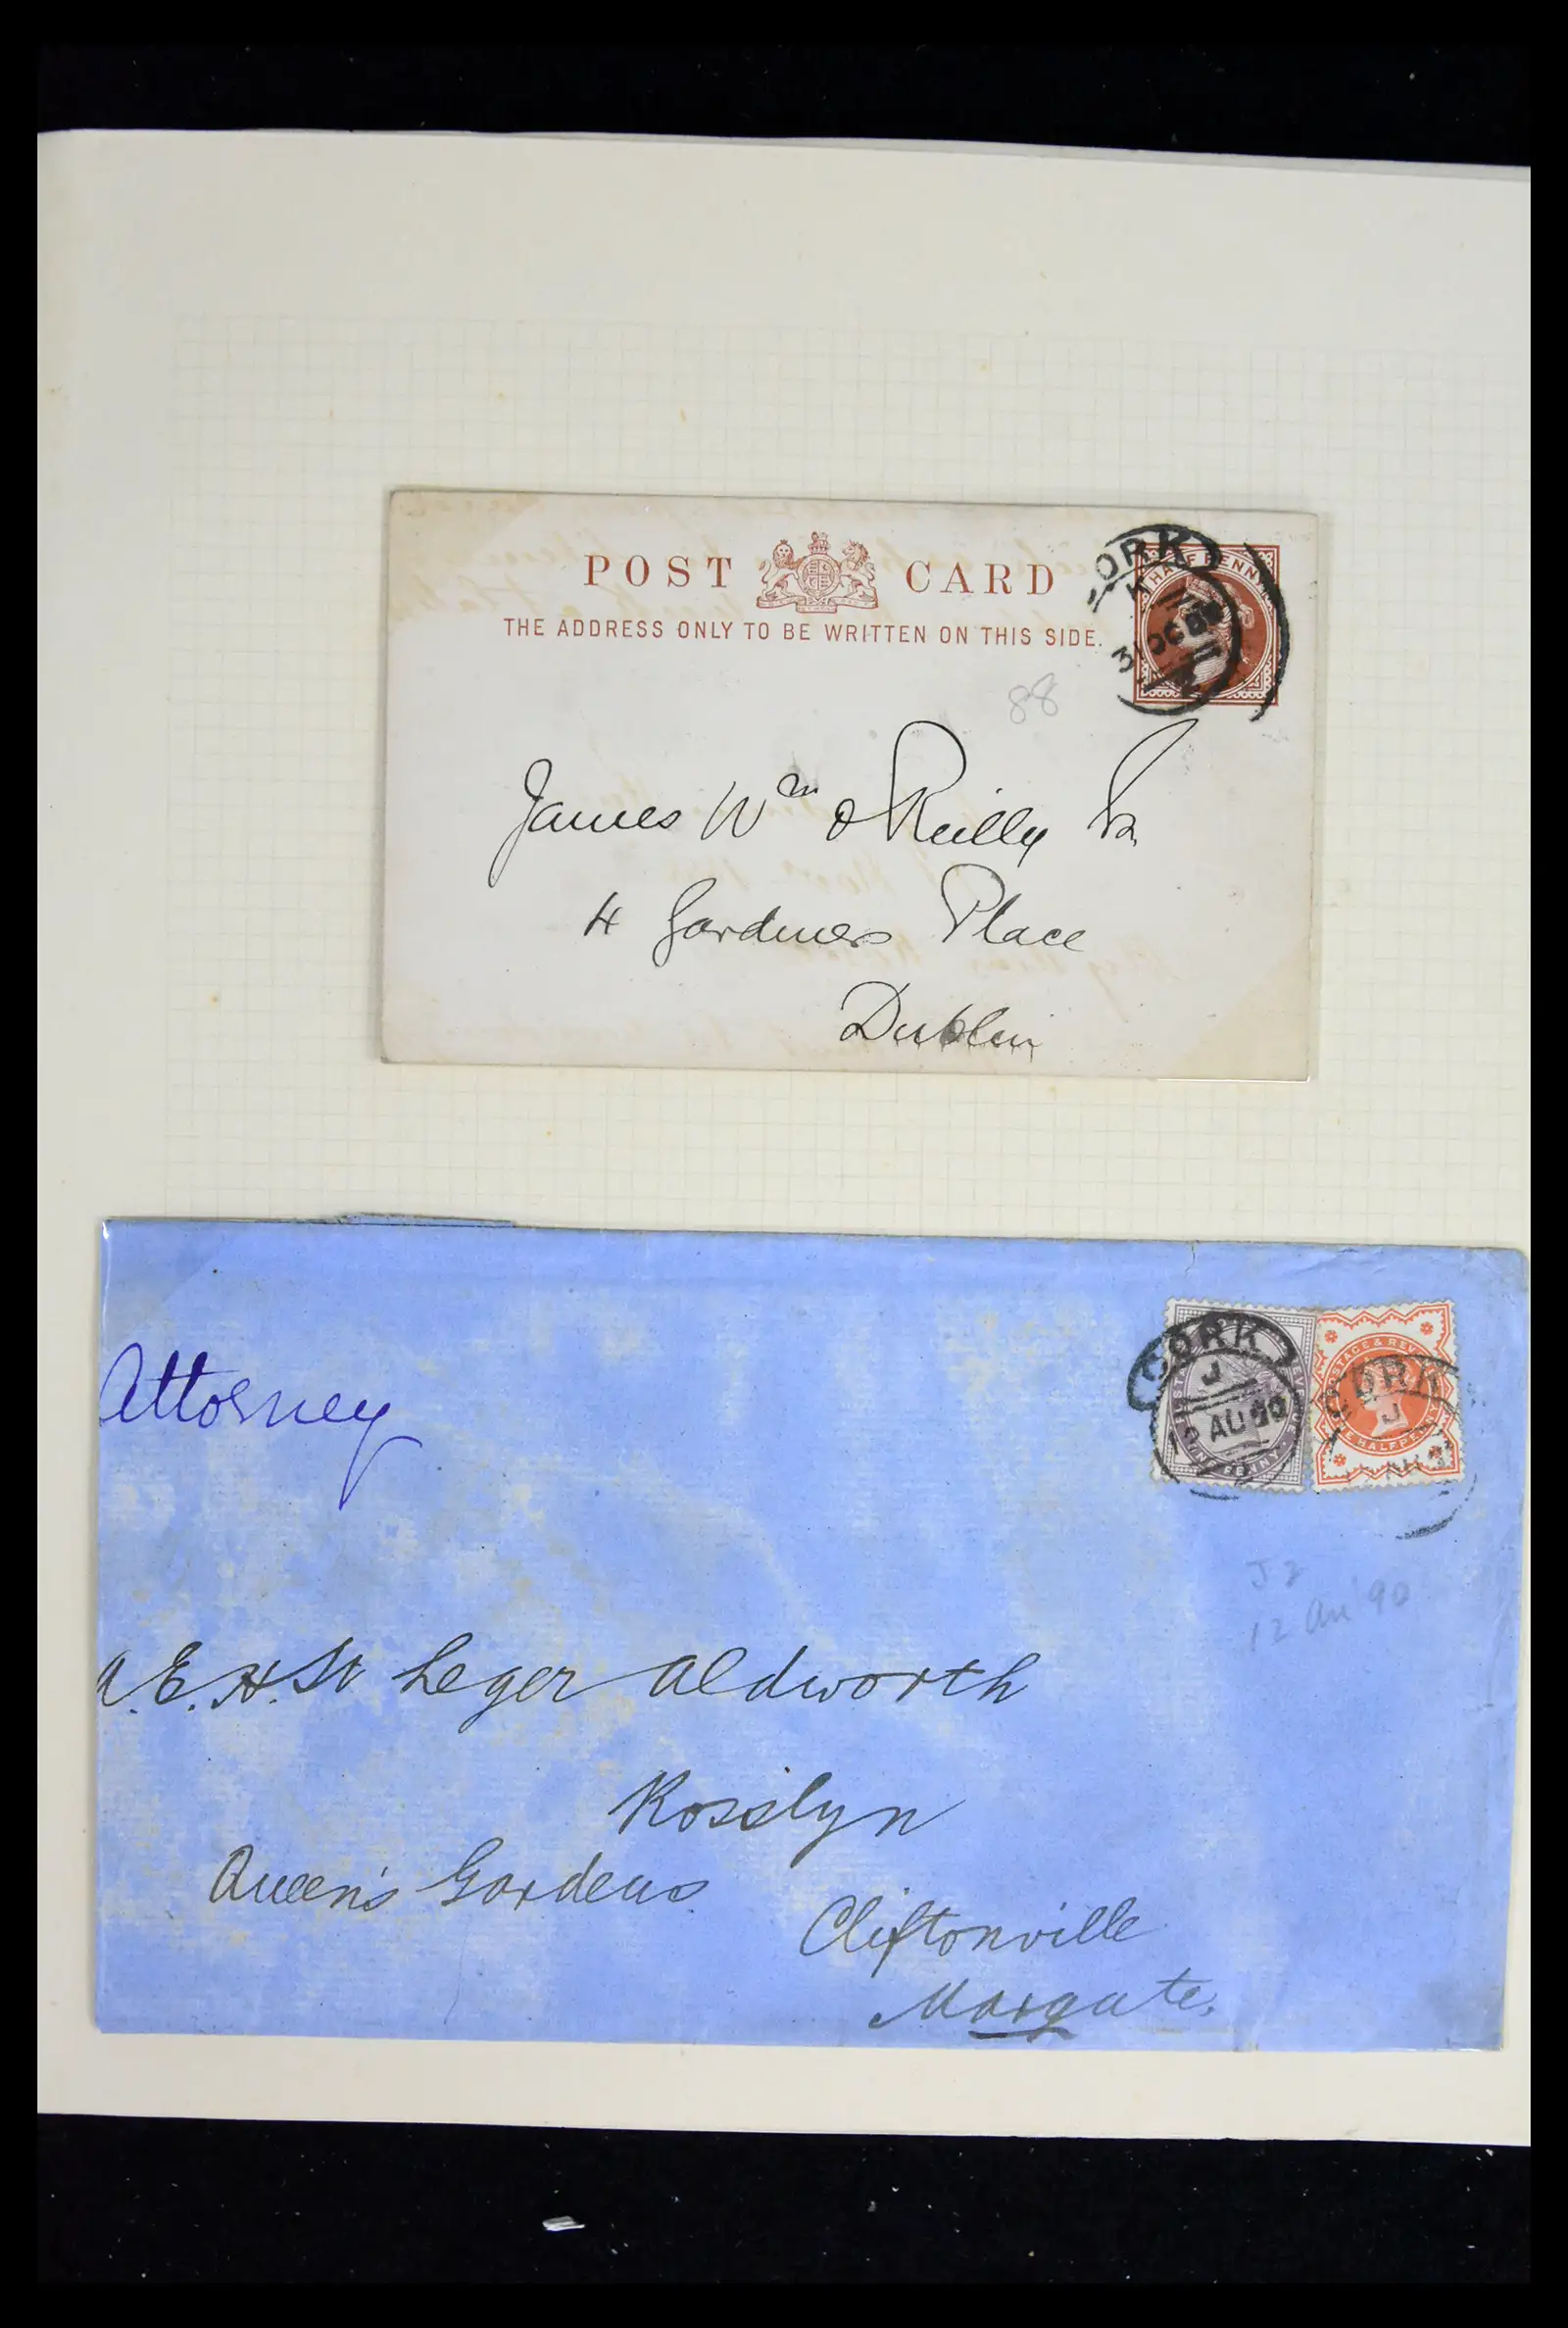 POST CARD
THE ADDRESS ONLY TO BE WRITTEN ON THIS SIDE.
HALFPENNY
CORK
31 OC 88
88
James Wm O'Reilly
4 Gardiners Place
Dublin
Attorney
CORK
J
12 AU 90
POSTAGE & REVENUE
ONE PENNY
POSTAGE & REVENUE
HALFPENNY
CORK
J
J2
12 Au '90
A. E. H. St Leger Aldworth
Rosslyn
Queen's Gardens
Cliftonville
Margate.